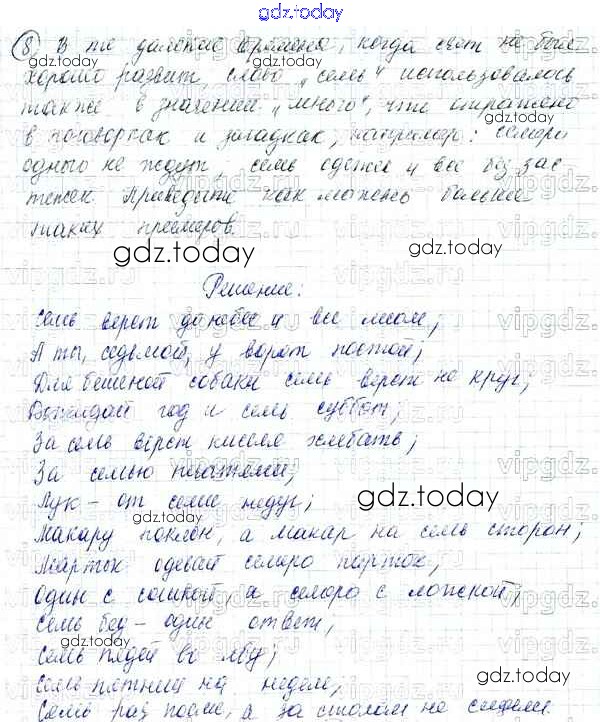 gdz.today
8) В те далекие времена, когда счет не был
хорошо развит, слово "семь" использовалось
также в значении "много", что отражено
в поговорках и загадках, например: семеро
одного не ждут, семь одежек и все без зас
тежек. Приведите как можешь больше
таких примеров.
Решение:
Семь верст до небес и все лесом;
А ты, седьмой, у ворот постой;
Для бешеной собаки семь верст не круг;
Выжидай год и семь суббот;
За семь верст киселя хлебать;
За семью печатями;
Лук - от семи недуг;
Макару поклон, а Макар на семь сторон;
Марток одевай семеро порток;
Один с сошкой, а семеро с ложкой;
Семь бед - один ответ;
Семь пядей во лбу;
Семь пятниц на неделе;
Семь раз поели, а за столом не сидели